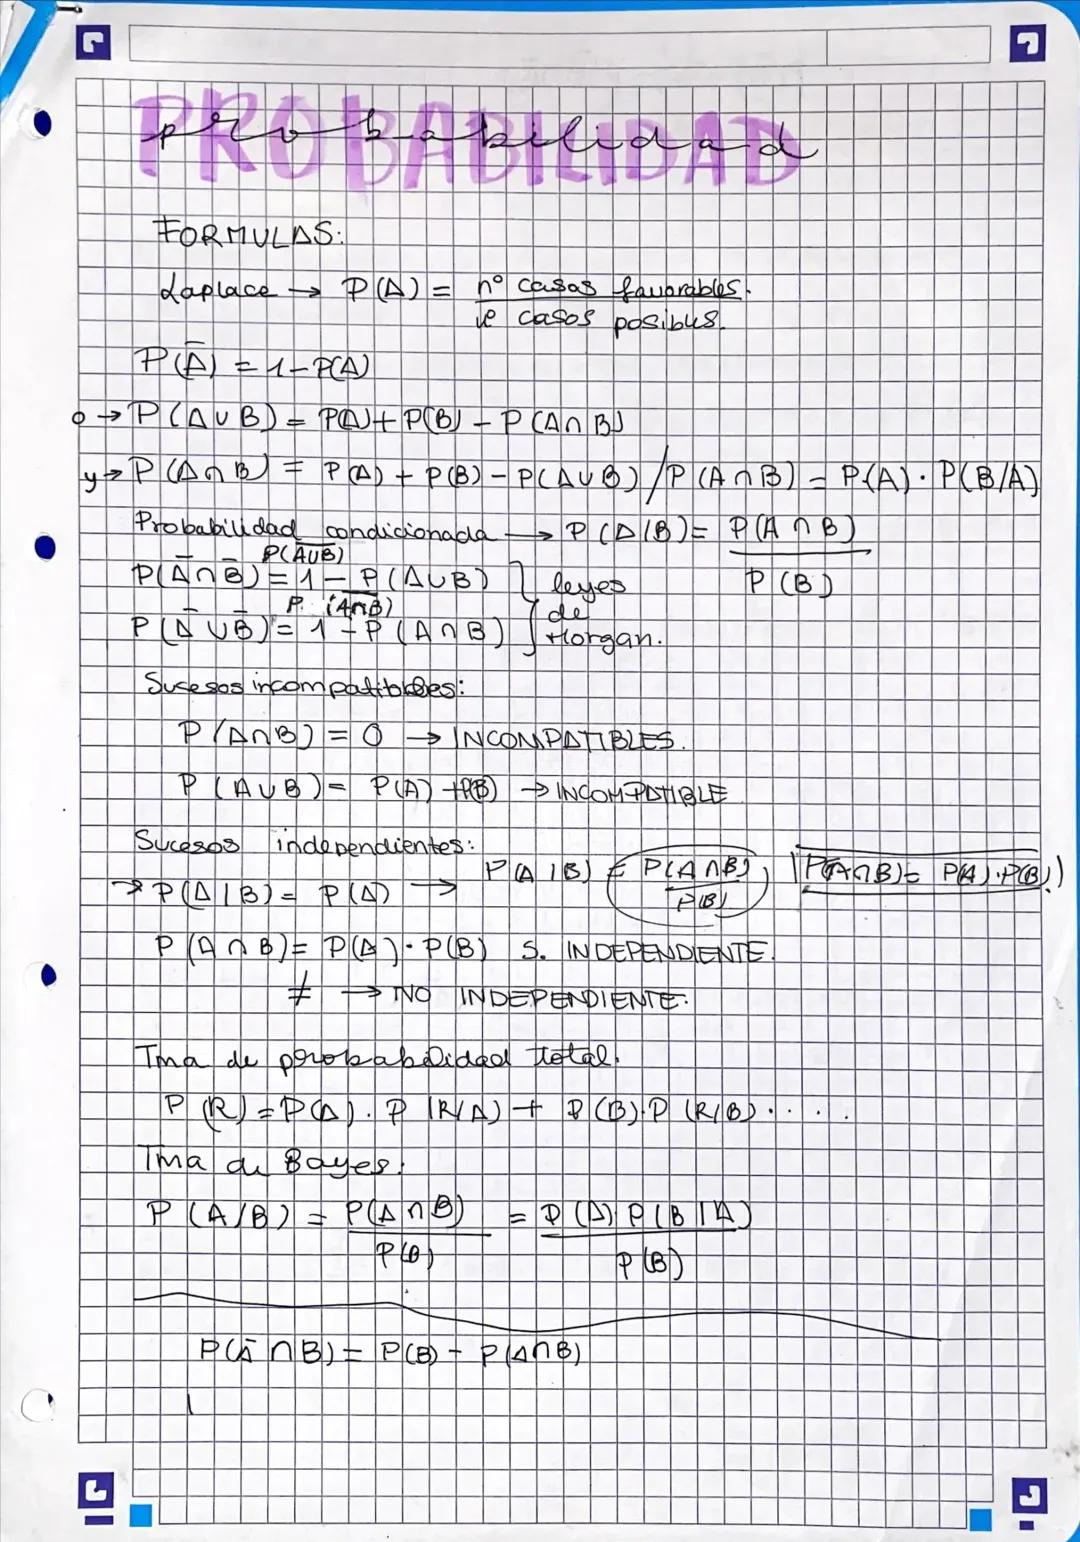 PROBABILIDAD
probabilidad
FORMULAS:
Laplace → P(A) = nº casos favorables.
nº casos posibles.
P(A̅) = 1-P(A)
o → P(A∪B) = P(A)+P(B) - P(A∩B)
y → P(A∩B) = P(A) + P(B) - P(A∪B) / P(A∩B) = P(A) · P(B/A)
Probabilidad condicionada → P(A/B) = P(A∩B)
P(B)
P(A̅∩B̅) = 1 - P(A∪B) leyes
P(A∪B)
P(A̅∪B̅) = 1 - P(A∩B) de Morgan.
P(A∩B)
Sucesos incompatibles:
P(A∩B) = 0 → INCOMPATIBLES.
P(A∪B) = P(A) + P(B) → INCOMPATIBLE
Sucesos independientes:
→ P(A|B) = P(A) → P(A|B) = P(A∩B) P(A∩B) = P(A)·P(B)
P(B)
P(A∩B) = P(A)·P(B) S. INDEPENDIENTE.
≠ → NO INDEPENDIENTE.
Tma de probabilidad total.
P(R) = P(A)·P(R/A) + P(B)·P(R/B).....
Tma de Bayes:
P(A/B) = P(A∩B) = P(A)·P(B|A)
P(B) P(B)
P(A̅∩B) = P(B) - P(A∩B)